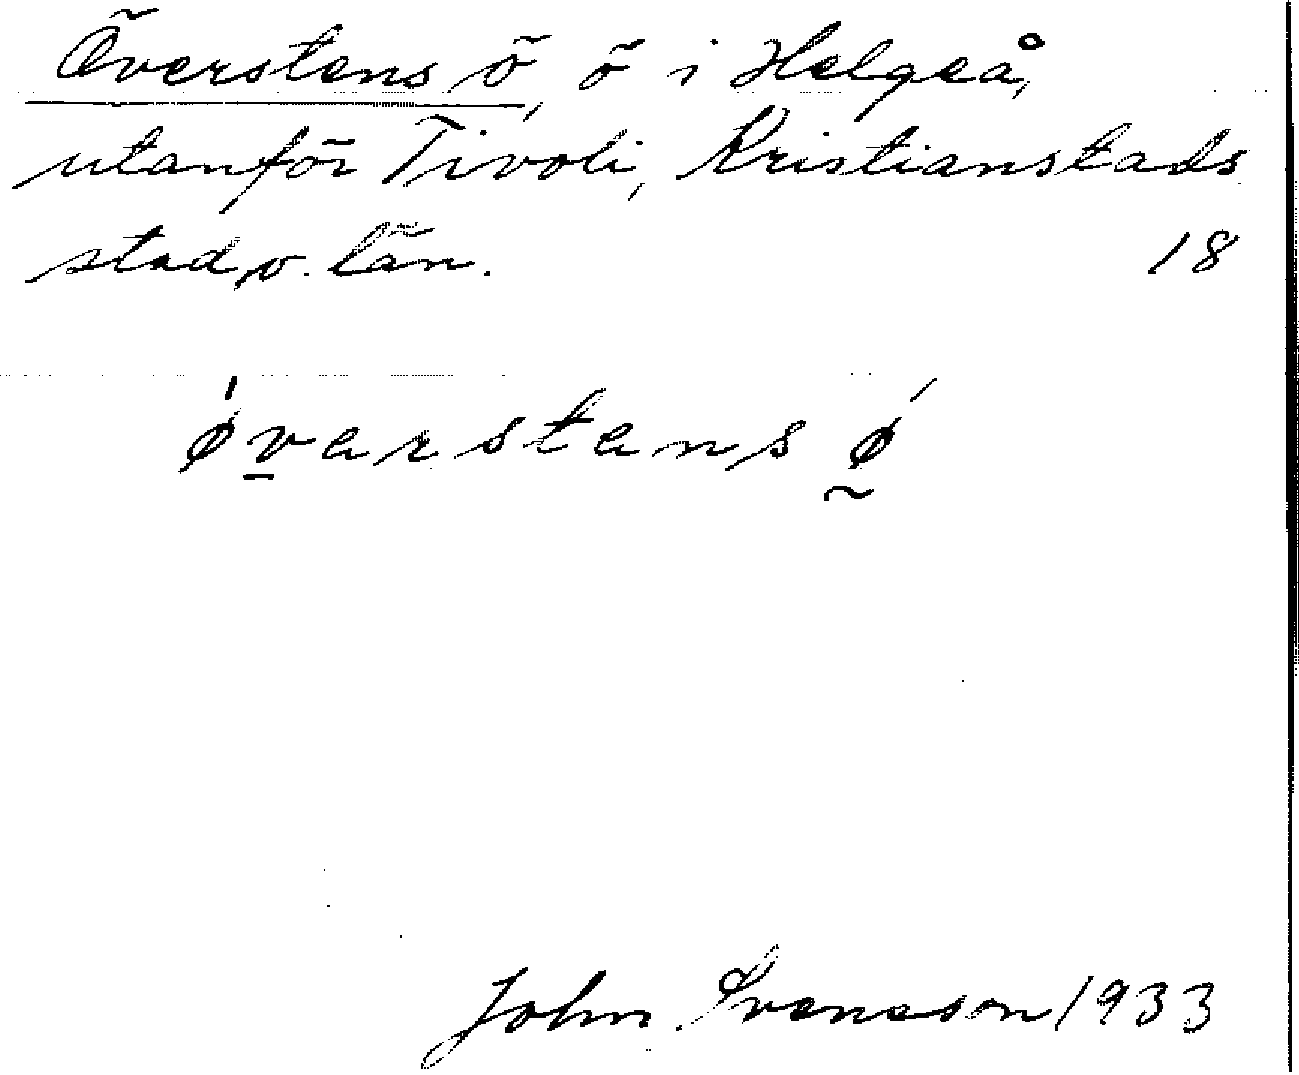 Överstens ö, ö i Helgeå,
utanför Tivoli, Kristianstads
stad o. län. 18
ǿvarstans ǿ
John Svensson 1933